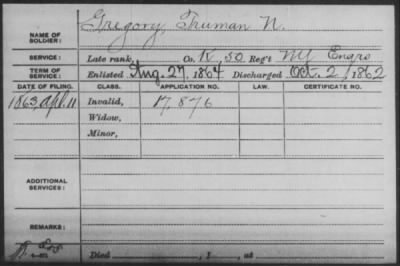 Gregory, Truman N.
NAME OF SOLDIER:
SERVICE: Late rank, Co. K, 50 Reg't NY Engrs
TERM OF SERVICE: Enlisted Aug. 27, 1864 Discharged Oct. 2, 1862
DATE OF FILING. CLASS. APPLICATION NO. LAW. CERTIFICATE NO.
1863, Apl. 11 Invalid, 17,876
Widow,
Minor,
ADDITIONAL SERVICES:
REMARKS:
Died , 1 , at